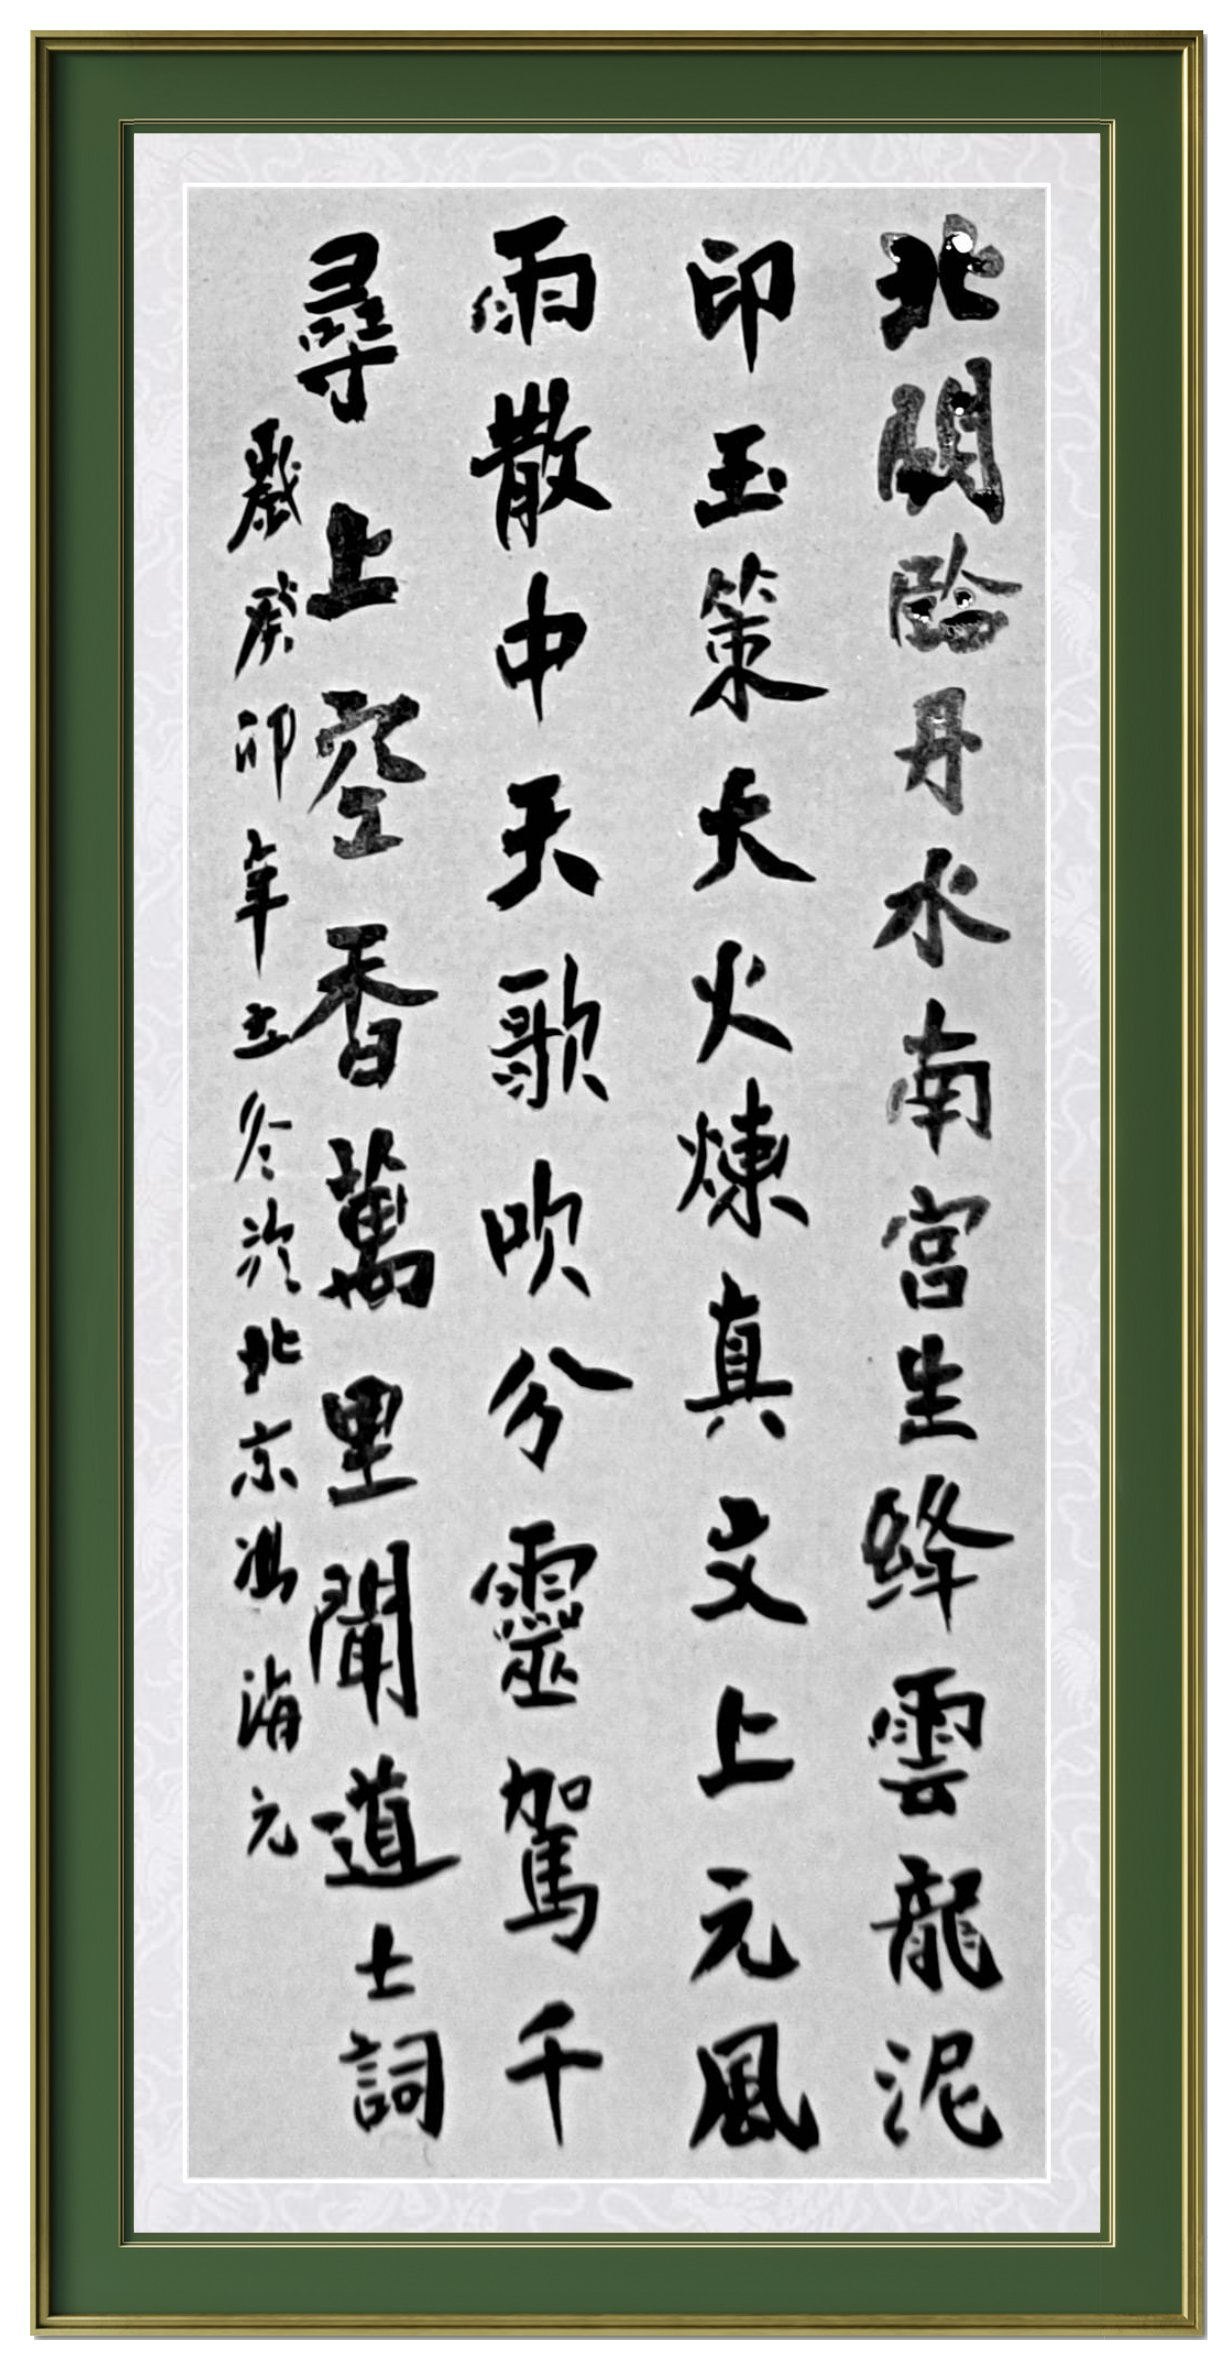 北闕臨丹水南宮生絳雲龍泥
印玉策大火煉真文上元風
雨散中天歌吹分靈駕千
尋上空香萬里聞道士詞
歲癸卯年冬於北京馮海元